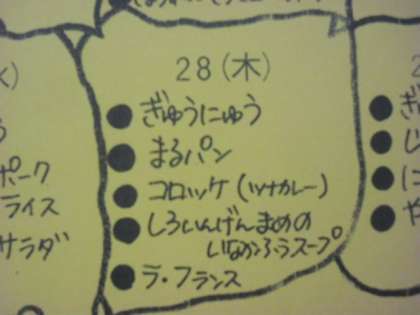 28(木)
ぎゅうにゅう
まるパン
コロッケ(ツナカレー)
しろいんげんまめの
いなかふうスープ
ラ・フランス
ポーク
ライス
サラダ